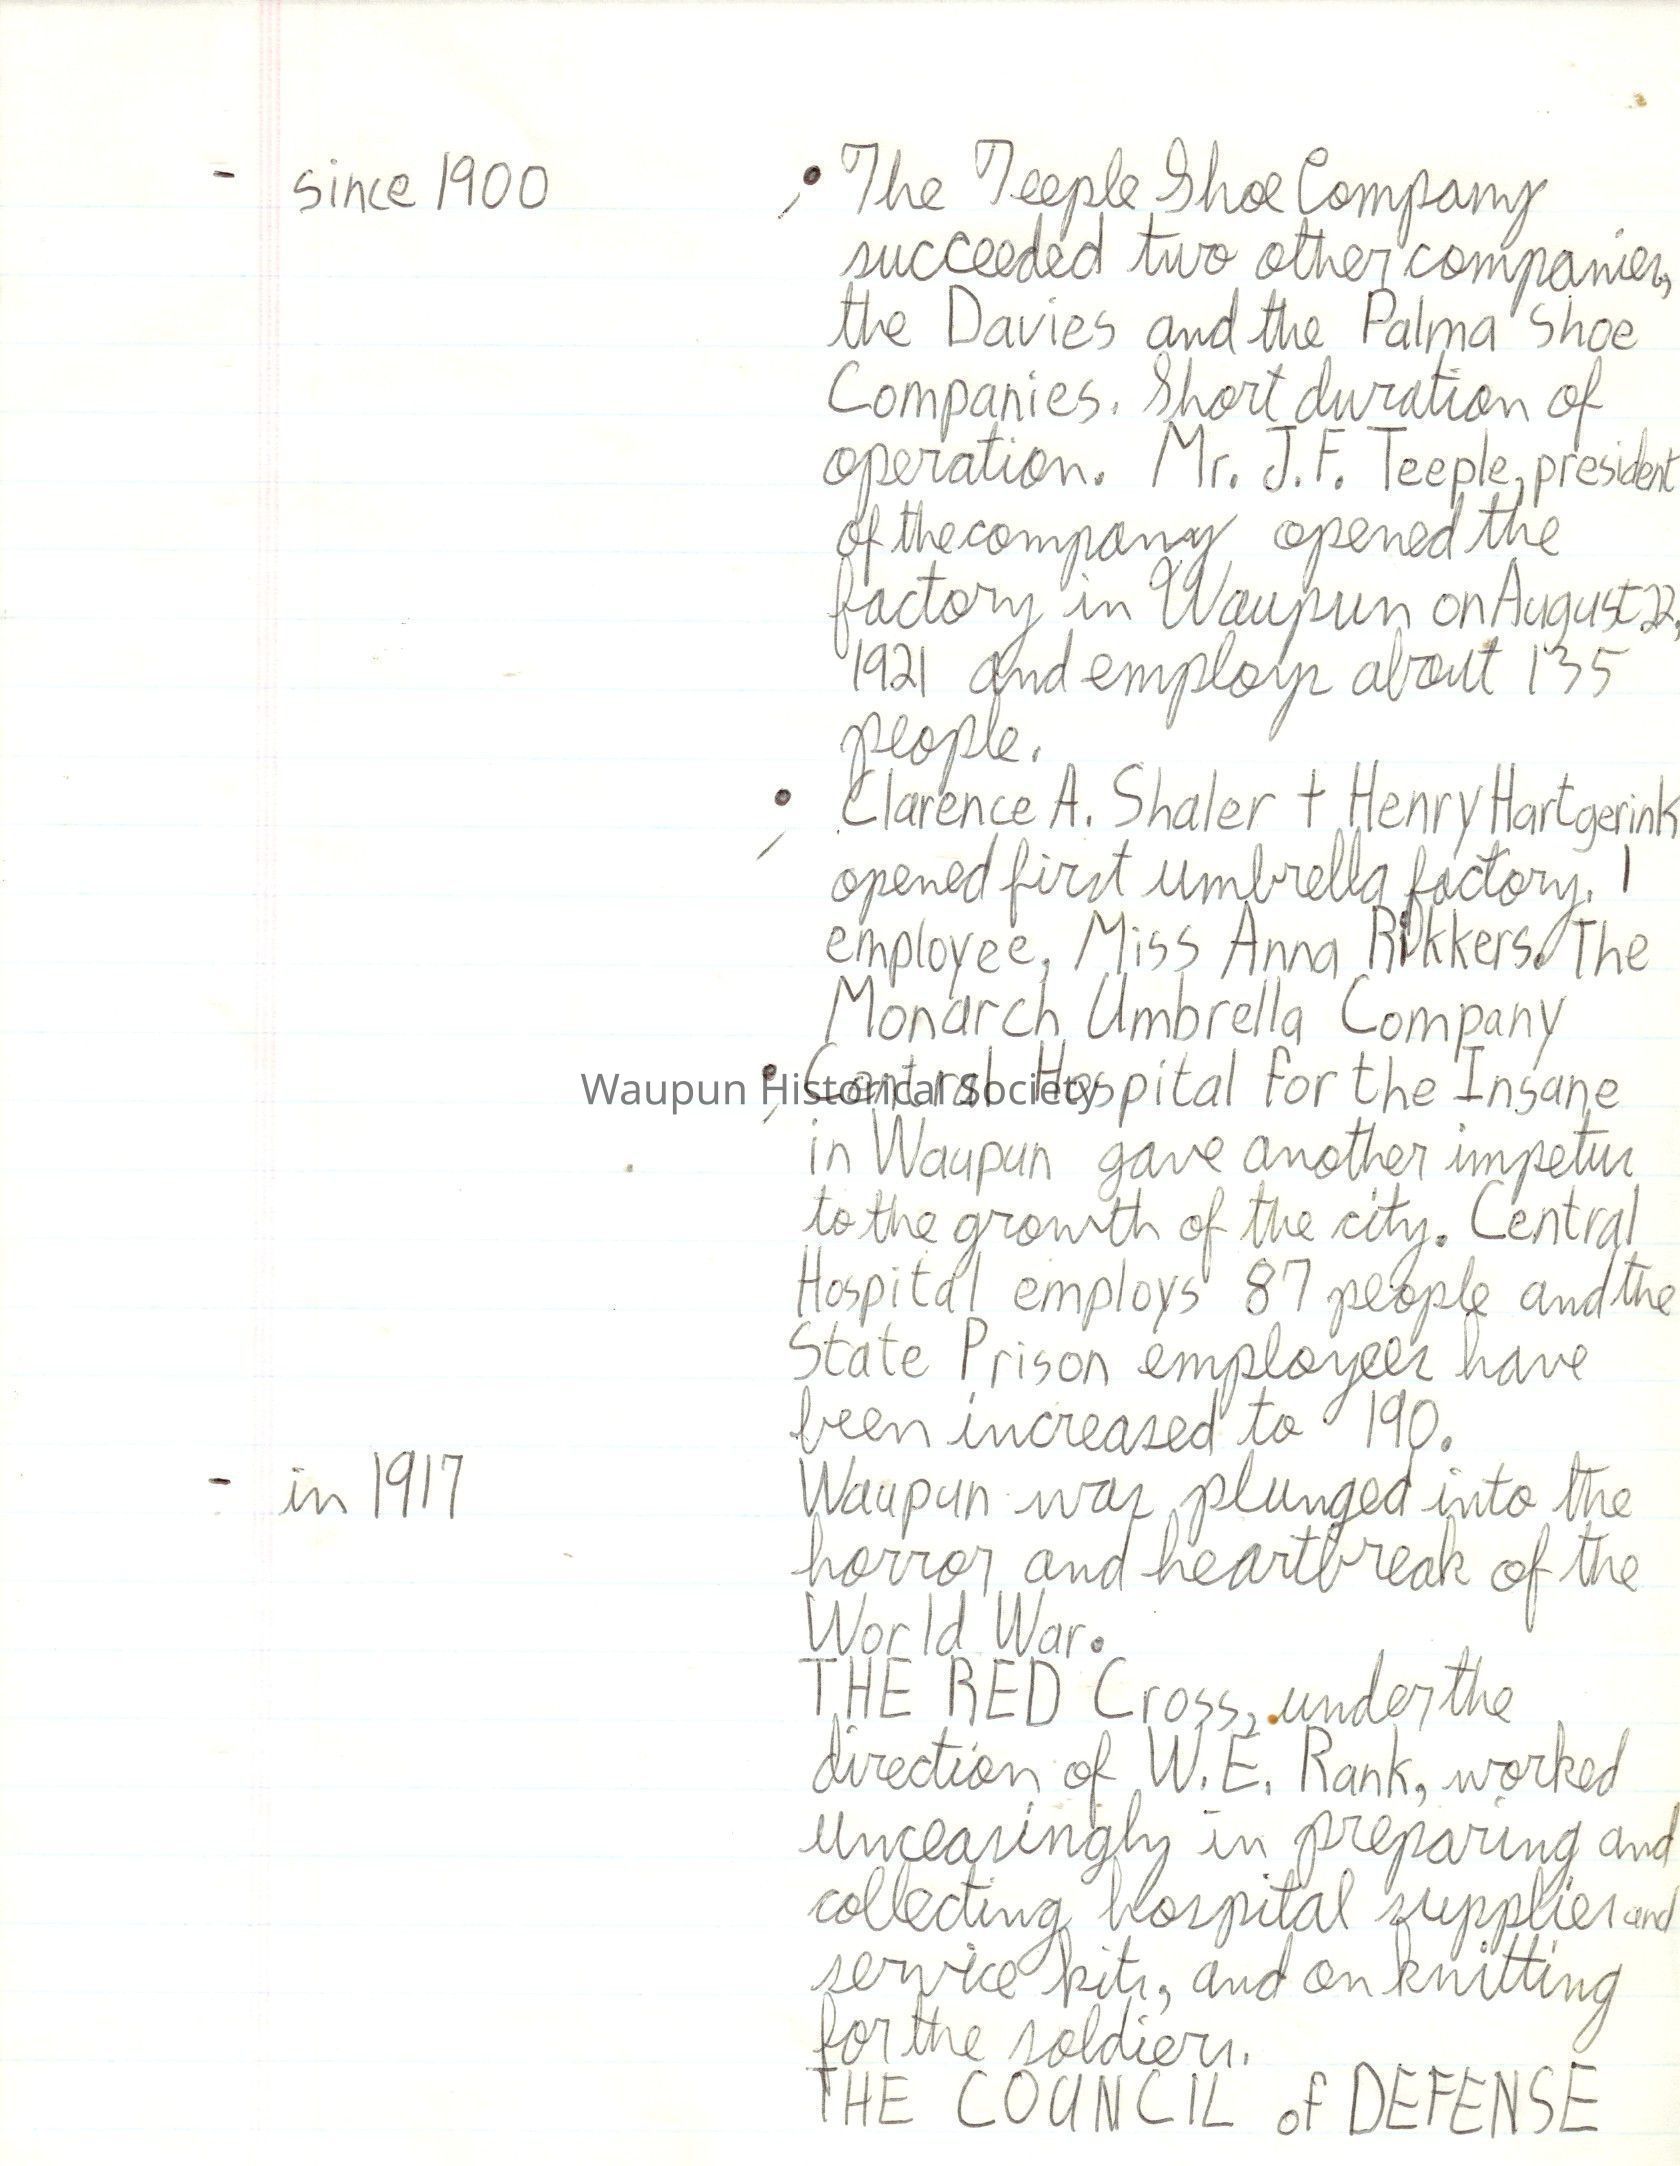 - since 1900
• The Teeple Shoe Company
succeeded two other companies,
the Davies and the Palma Shoe
Companies. Short duration of
operation. Mr. J.F. Teeple, president
of the company opened the
factory in Waupun on August 22,
1921 and employs about 135
people.
• Clarence A. Shaler + Henry Hartgerink
opened first umbrella factory. 1
employee, Miss Anna Rikkers. The
Monarch Umbrella Company
• Central Hospital for the Insane
Waupun Historical Society
in Waupun gave another impetus
to the growth of the city. Central
Hospital employs 87 people and the
State Prison employees have
been increased to 190.
- in 1917
Waupun was plunged into the
horror and heartbreak of the
World War.
THE RED Cross, under the
direction of W.E. Rank, worked
unceasingly in preparing and
collecting hospital supplies and
service kits, and on knitting
for the soldiers.
THE COUNCIL of DEFENSE